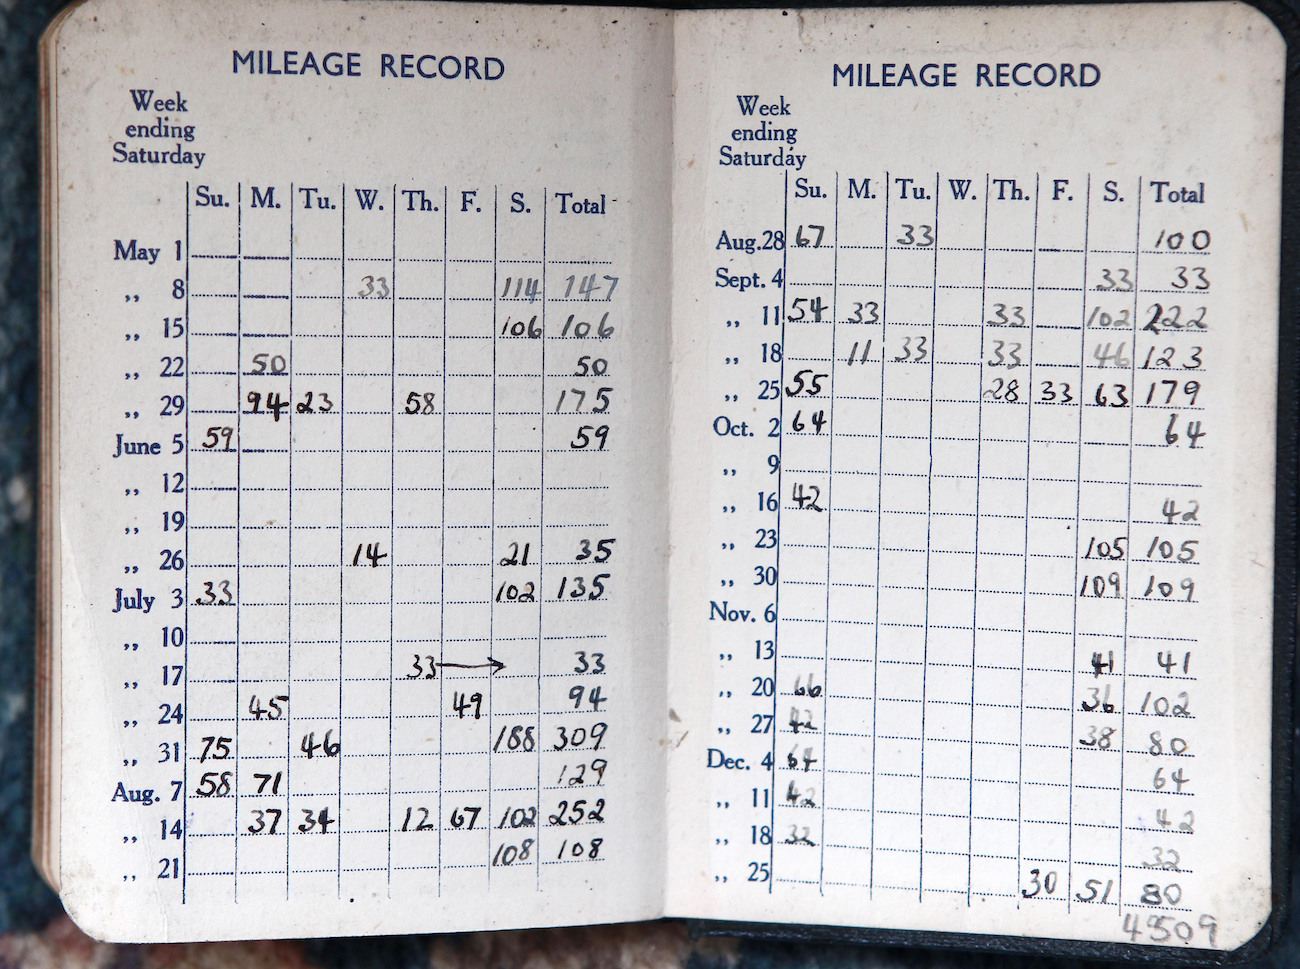 MILEAGE RECORD
Week
ending
Saturday
Su. M. Tu. W. Th. F. S. Total
May 1
,, 8 33 114 147
,, 15 106 106
,, 22 50 50
,, 29 94 23 58 175
June 5 59 59
,, 12
,, 19
,, 26 14 21 35
July 3 33 102 135
,, 10
,, 17 33 → 33
,, 24 45 49 94
,, 31 75 46 188 309
Aug. 7 58 71 129
,, 14 37 34 12 67 102 252
,, 21 108 108
MILEAGE RECORD
Week
ending
Saturday
Su. M. Tu. W. Th. F. S. Total
Aug. 28 67 33 100
Sept. 4 33 33
,, 11 54 33 33 102 222
,, 18 11 33 33 46 123
,, 25 55 28 33 63 179
Oct. 2 64 64
,, 9
,, 16 42 42
,, 23 105 105
,, 30 109 109
Nov. 6
,, 13 41 41
,, 20 66 36 102
,, 27 42 38 80
Dec. 4 64 64
,, 11 42 42
,, 18 32 32
,, 25 30 51 80
4509